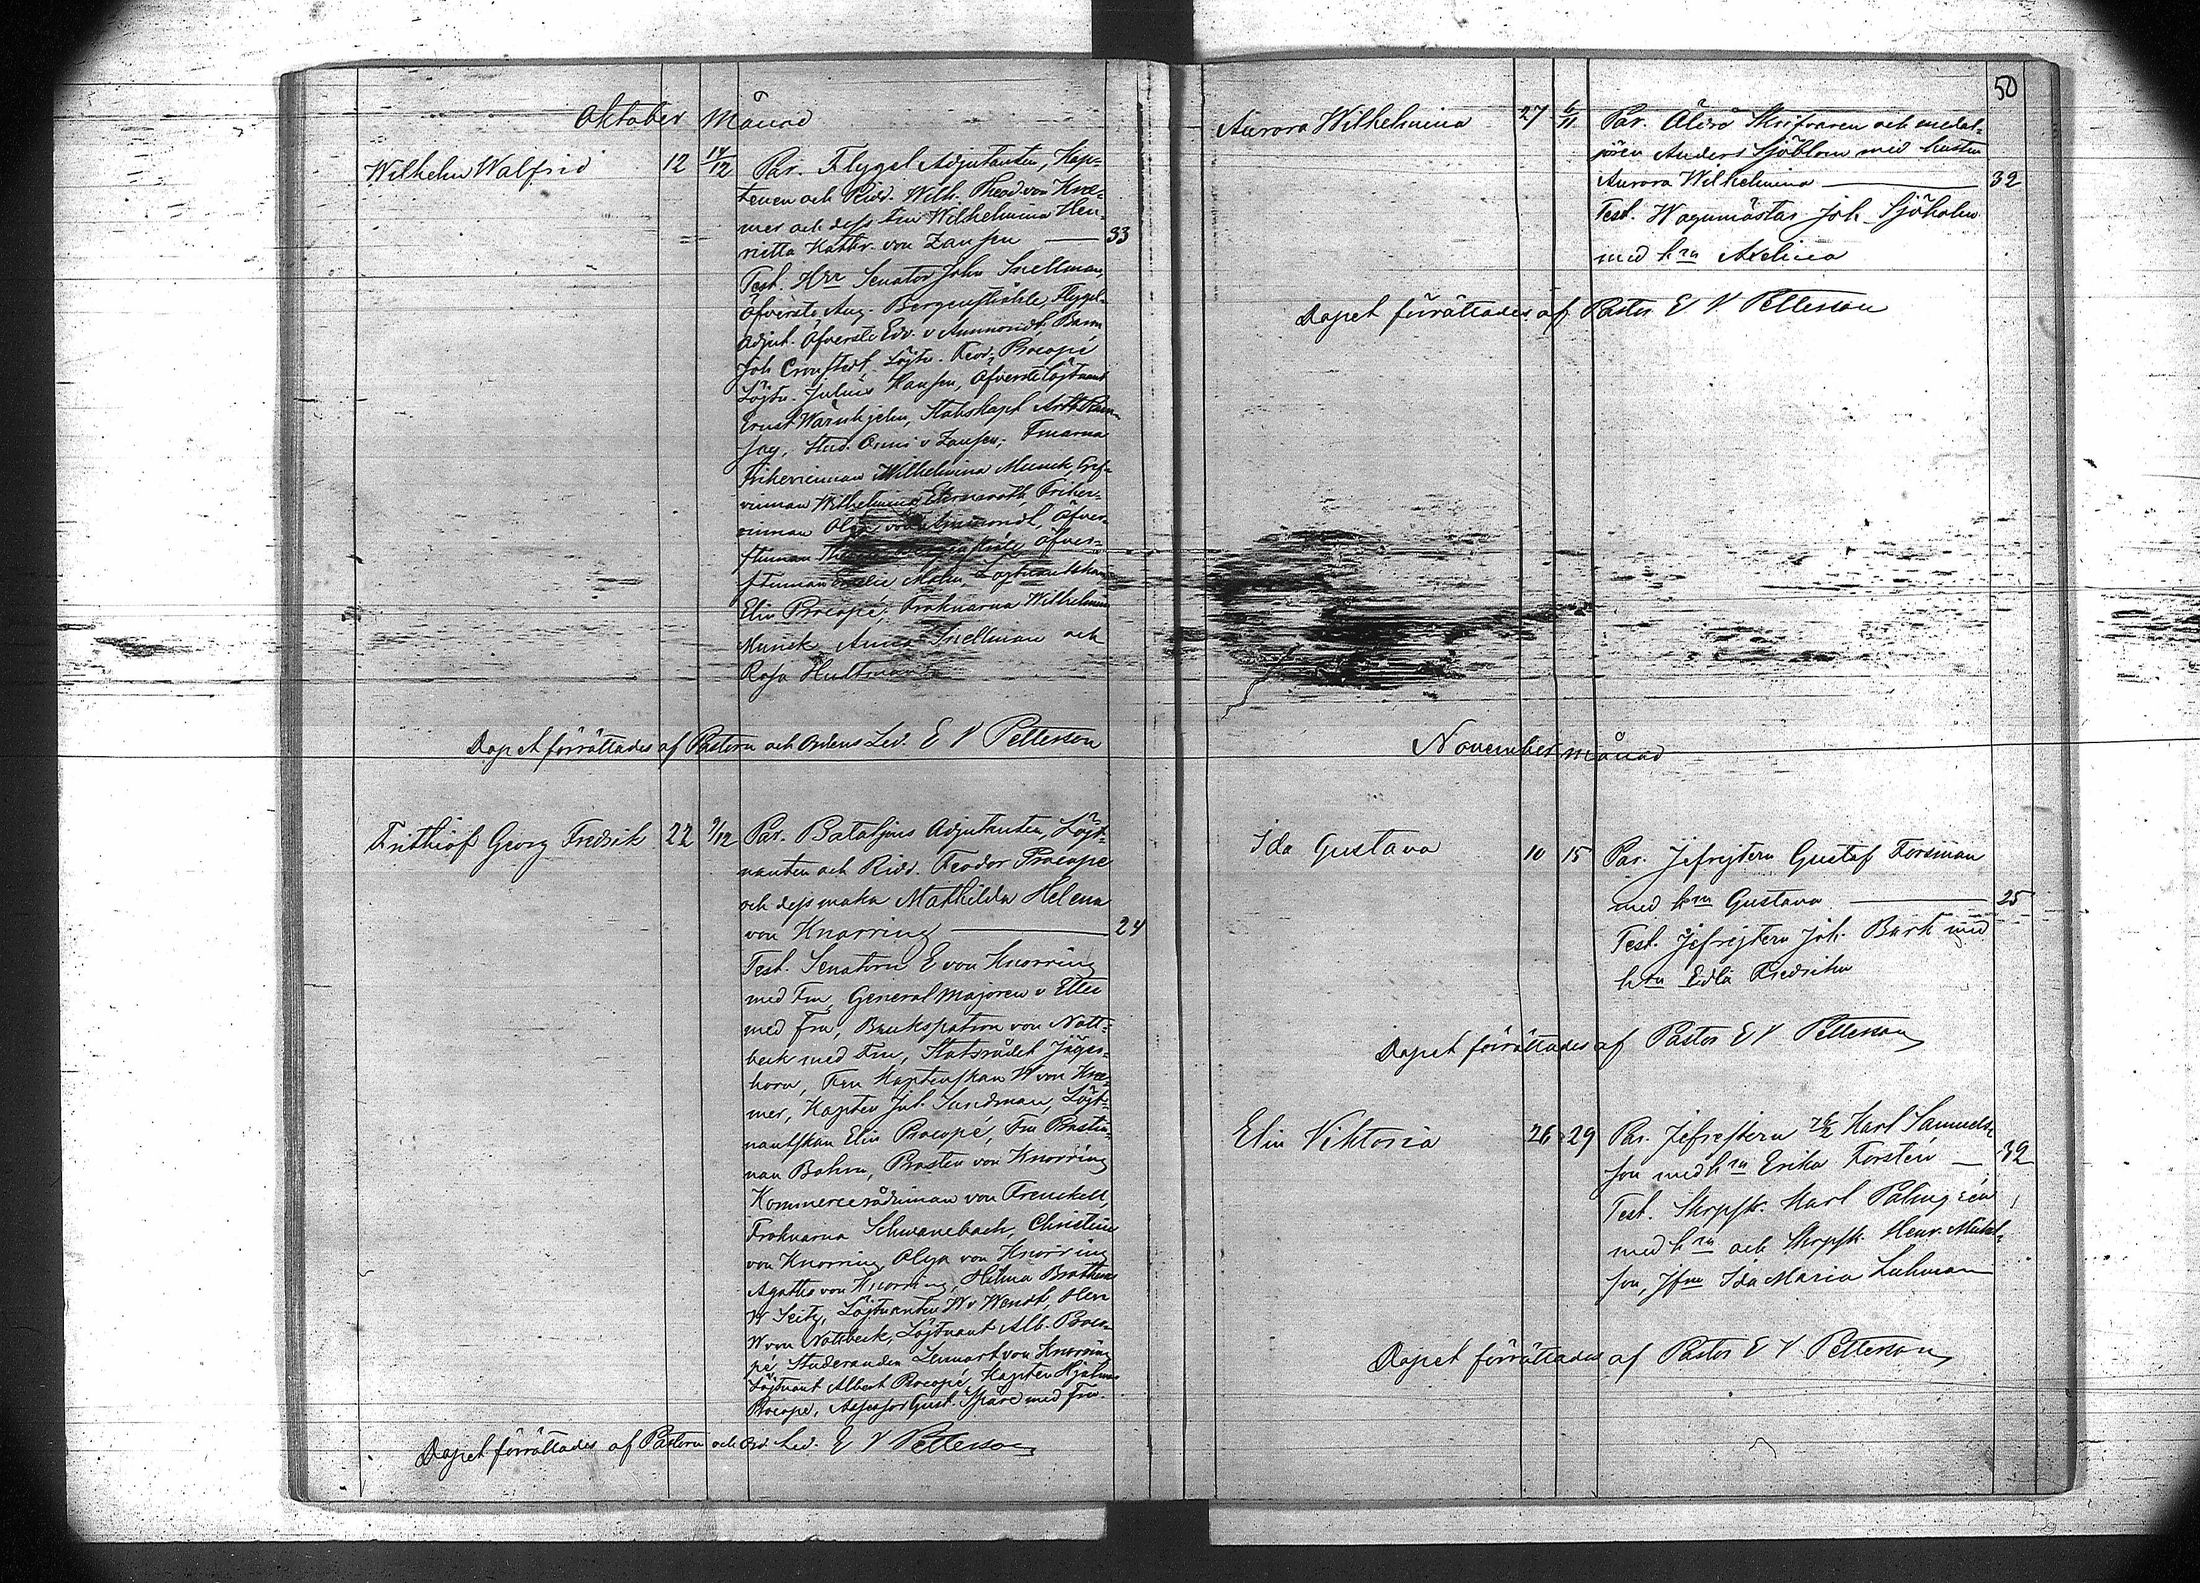 Oktober Månad
Wilhelm Walfrid 12 14/12 Par. Flygel Adjutanten, Kap-
tenen och Ridd. Wilh. Theod. von Kræ-
mer och dess Fru Wilhelmina Hen-
rietta Kathr. von Zansen — 33
Test. Hrr Senator John Snellman,
Öfverste Aug. Bergenstråhle, Flygel-
Adjut. Öfverste Edv. v Ammondt, Baron
Joh Cronstedt, Löjtn. Feod. Procopé
Löjtn. Julius Hansen, Öfverstelöjtnant
Ernst Wärnhjelm, Stabskapt Arth
Stud. Onni v Zansen; Fruarna
Friherrinnan Wilhelmina Munck, Gref-
vinnan Wilhelmina Friher-
rinnan Olga von Ammondt, Öfver-
stinnan Öfver-
stinnan Emelie Malm, Löjtnantskan
Elin Procopé; Fröknarna Wilhelmina
Munck Anna Snellman och
Rosa Hultman
Dopet förrättades af Pastorn och Ordens Led. E V Petterson
Frithiof Georg Fredrik 22 9/12 Par. Bataljons Adjutanten, Löjt-
nanten och Ridd. Feodor Procopé
och dess maka Mathilda Helena
von Knorring — 24
Test. Senatorn E von Knorring
med Fru, General majoren v Etter
med Fru, Brukspatron von Nott-
beck med Fru, Statsrådet Jäger-
horn, Fru Kaptenskan W von Kræ-
mer, Kapten Jul. Sundman, Löjt-
nantskan Elin Procopé, Fru Prostin-
nan Bohm, Prosten von Knorring
Kommerserådinnan von Frenckell,
Fröknarna Schwanebach, Christine
von Knorring Olga von Knorring
Agathe von Knorring, Hilma Brotherus
W Seitz, Löjtnanten W v Wendt, Herr
W von Nottbeck, Löjtnant Alb. Proco-
pé Studeranden Lennart von Knorring
Löjtnant Albert Procopé, Kapten Hjalmar
Procopé, Assessor Gust. Spåre med Fru.
Dopet förrättades af Pastorn och Ord. Led. E V Petterson
50
Aurora Wilhelmina 27 6/11 Par. Äldre Skrifvaren och medal-
jören Anders Sjöblom med hustru
Aurora Wilhelmina — 32
Test. Wagnmästar Joh. Sjöholm
med hru Axelina
Dopet förrättades af Pastor E V Petterson
November månad
Ida Gustava 10 15 Par. Jefrejtern Gustaf Forsman
med hru Gustava — 25
Test. Jefrejtern Joh. Burk med
hru Edla Fredrika
Dopet förrättades af Pastor E V Petterson
Elin Viktoria 26 29 Par. Jefrejtern Karl Samuels-
son med hru Erika Forstén — 32
Test. Skrpsk. Karl Palmgrén
med hru och Skrpsk. Henr. Mickel-
son, Jfru Ida Maria Luhman
Dopet förrättades af Pastor E V Petterson